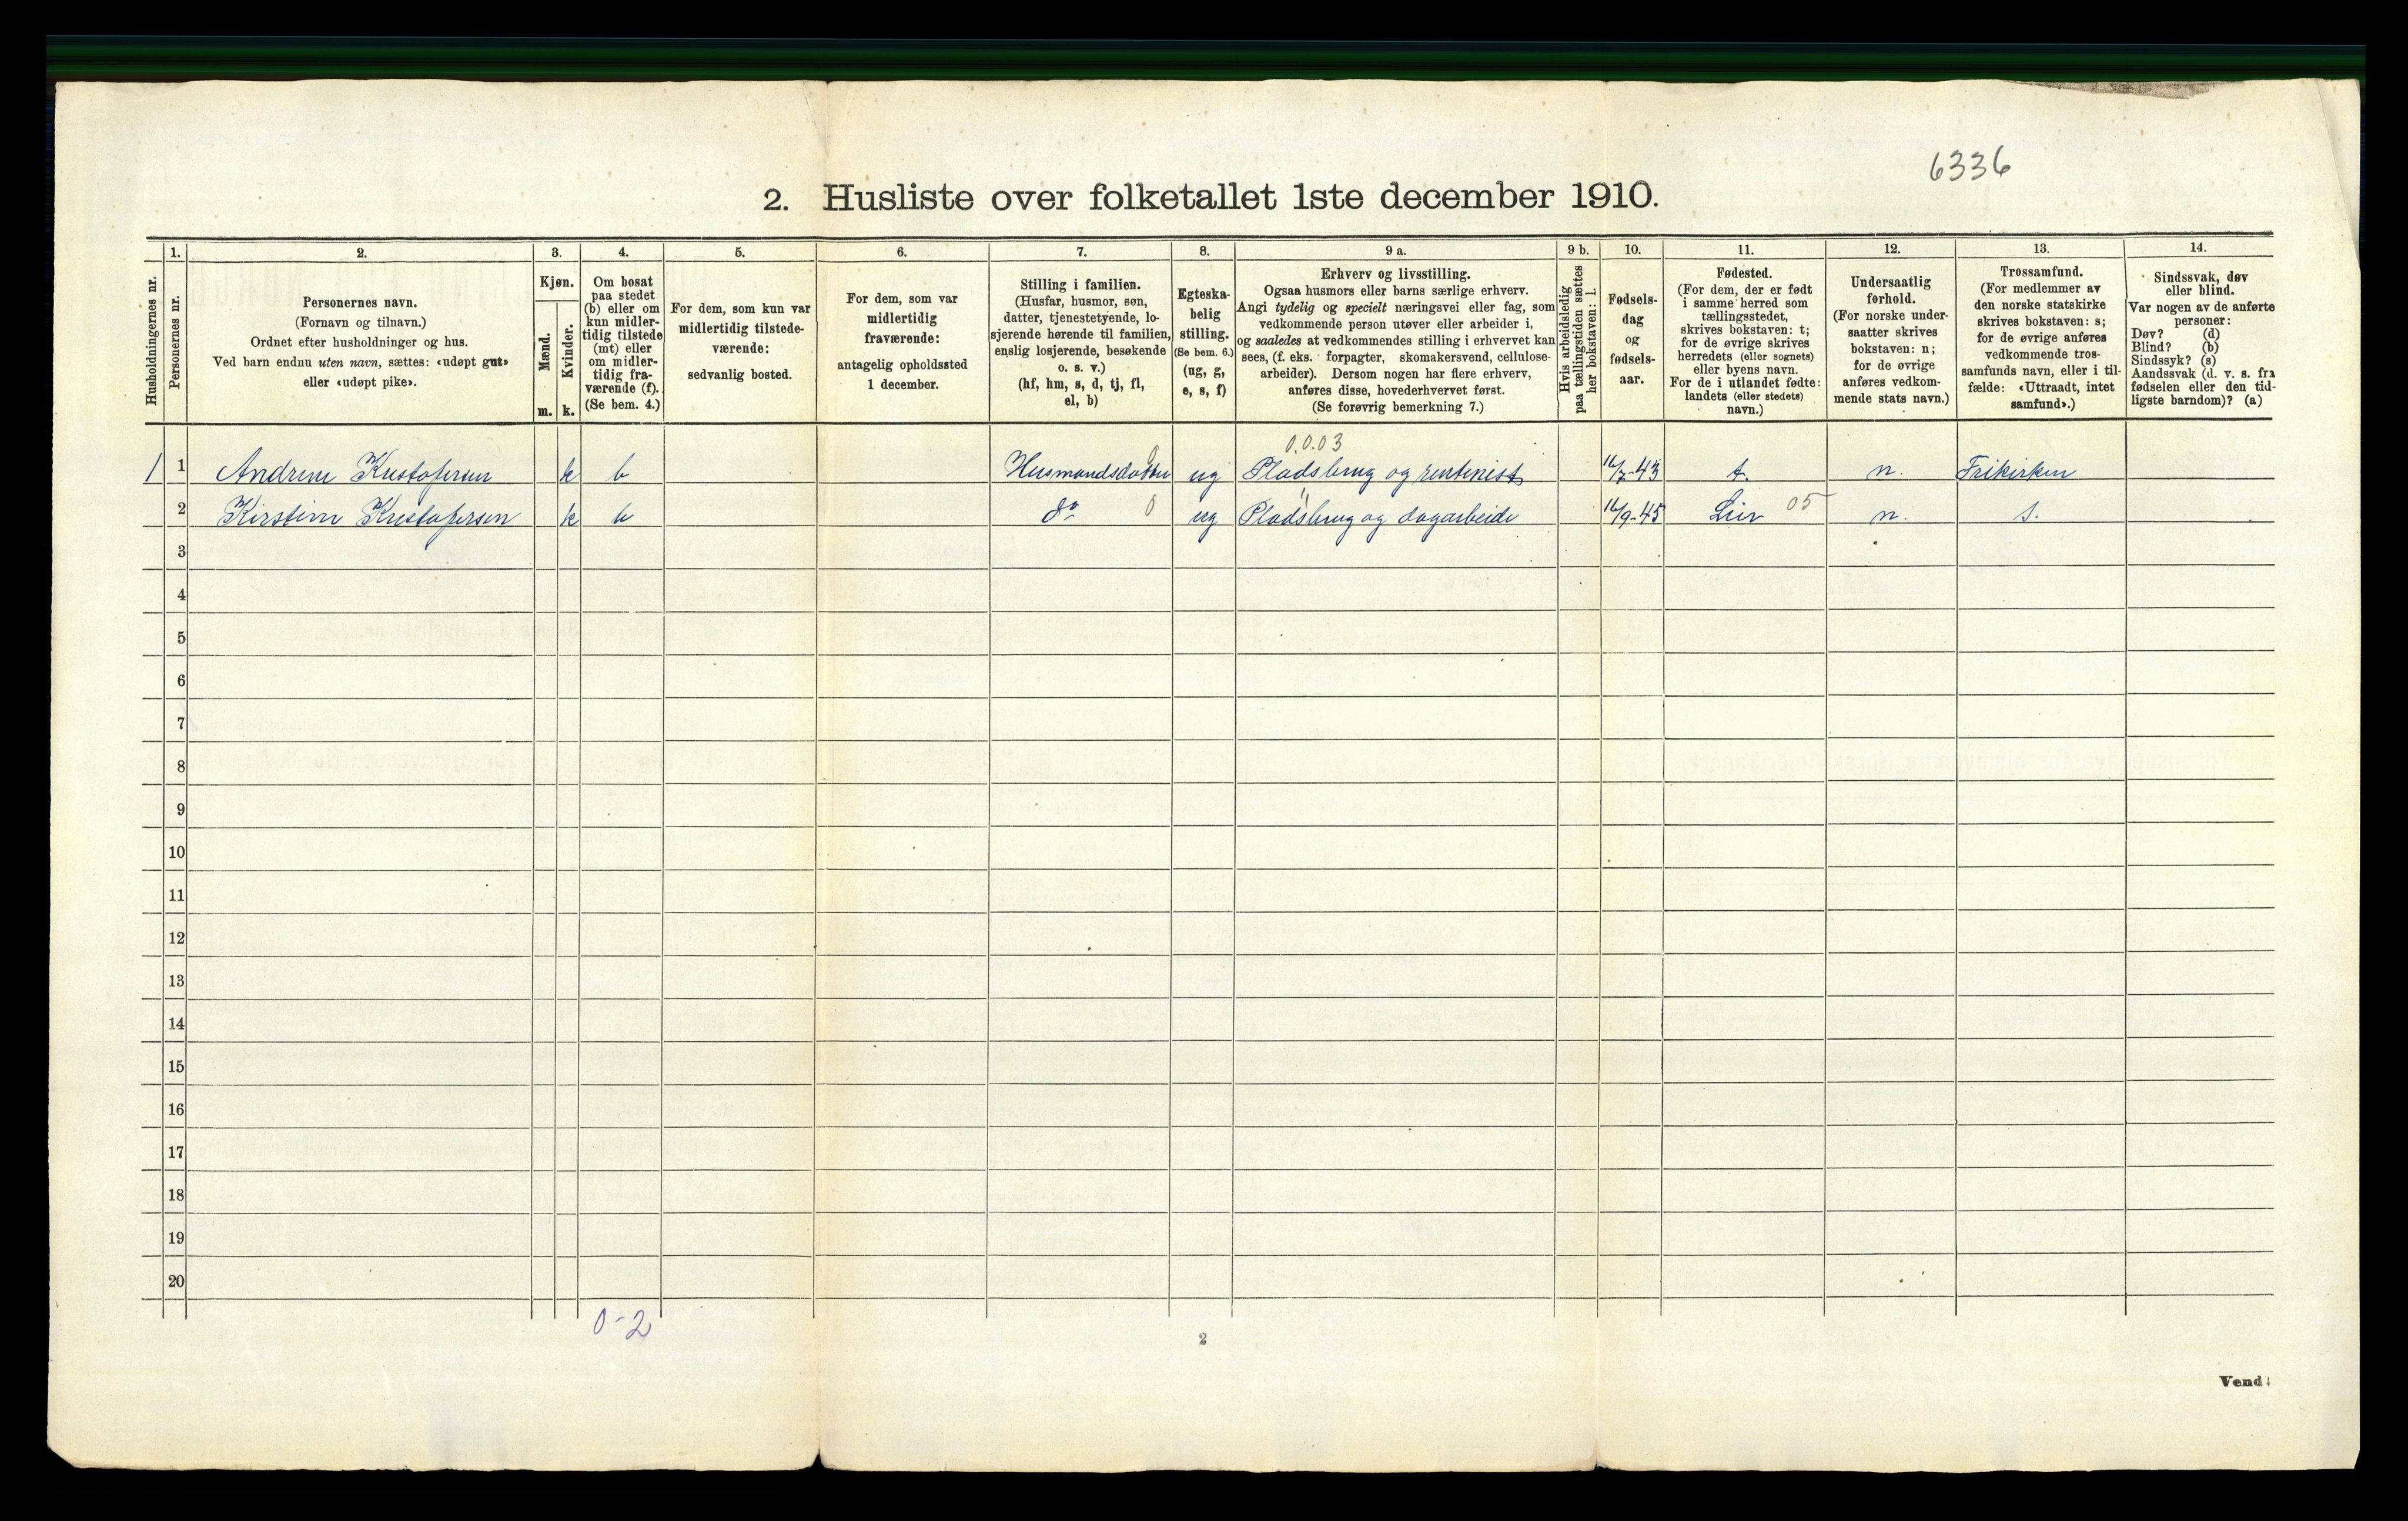 6336
2. Husliste over folketallet 1ste december 1910.
Husholdningernes nr.
1.
Personernes nr.
2.
Personernes navn.
(Fornavn og tilnavn.)
Ordnet efter husholdninger og hus.
Ved barn endnu uten navn, sættes: «udøpt gut»
eller «udøpt pike».
3.
Kjøn.
Mænd.
m.
Kvinder.
k.
4.
Om bosat
paa stedet
(b) eller om
kun midler-
tidig tilstede
(mt) eller
om midler-
tidig fra-
værende (f).
(Se bem. 4.)
5.
For dem, som kun var
midlertidig tilstede-
værende:
sedvanlig bosted.
6.
For dem, som var
midlertidig
fraværende:
antagelig opholdssted
1 december.
7.
Stilling i familien.
(Husfar, husmor, søn,
datter, tjenestetyende, lo-
sjerende hørende til familien,
enslig losjerende, besøkende
o. s. v.)
(hf, hm, s, d, tj, fl,
el, b)
8.
Egteska-
belig
stilling.
(Se bem. 6.)
(ug, g,
e, s, f)
9 a.
Erhverv og livsstilling.
Ogsaa husmors eller barns særlige erhverv.
Angi tydelig og specielt næringsvei eller fag, som
vedkommende person utøver eller arbeider i,
og saaledes at vedkommendes stilling i erhvervet kan
sees, (f. eks. forpagter, skomakersvend, cellulose-
arbeider). Dersom nogen har flere erhverv,
anføres disse, hovederhvervet først.
(Se forøvrig bemerkning 7.)
9 b.
Hvis arbeidsledig
paa tællingstiden sættes
her bokstaven: l.
10.
Fødsels-
dag
og
fødsels-
aar.
11.
Fødested.
(For dem, der er født
i samme herred som
tællingsstedet,
skrives bokstaven: t;
for de øvrige skrives
herredets (eller sognets)
eller byens navn.
For de i utlandet fødte:
landets (eller stedets)
navn.)
12.
Undersaatlig
forhold.
(For norske under-
saatter skrives
bokstaven: n;
for de øvrige
anføres vedkom-
mende stats navn.)
13.
Trossamfund.
(For medlemmer av
den norske statskirke
skrives bokstaven: s;
for de øvrige anføres
vedkommende tros-
samfunds navn, eller i til-
fælde: «Uttraadt, intet
samfund».)
14.
Sindssvak, døv
eller blind.
Var nogen av de anførte
personer:
Døv? (d)
Blind? (b)
Sindssyk? (s)
Aandssvak (d. v. s. fra
fødselen eller den tid-
ligste barndom)? (a)
0.0.03
1 1 Andrine Kristofersen k b Husmandsdatter 0 ug Pladsbrug og rentenist 16/7-43 t. n. Frikirken
2 Kirstine Kristofersen k b do 0 ug Pladsbrug og dagarbeide 16/9-45 Lier 05 n. s.
3
4
5
6
7
8
9
10
11
12
13
14
15
16
17
18
19
20
0-2
2
Vend!